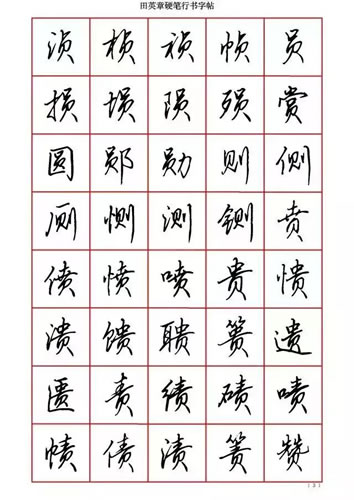 田英章硬笔行书字帖
浈 桢 祯 帧 员
损 埙 陨 殒 赏
圆 郧 勋 则 侧
厕 恻 测 铡 贲
偾 愤 喷 贵 愦
溃 馈 聩 篑 遗
匮 责 绩 碛 啧
帻 债 渍 箦 赞